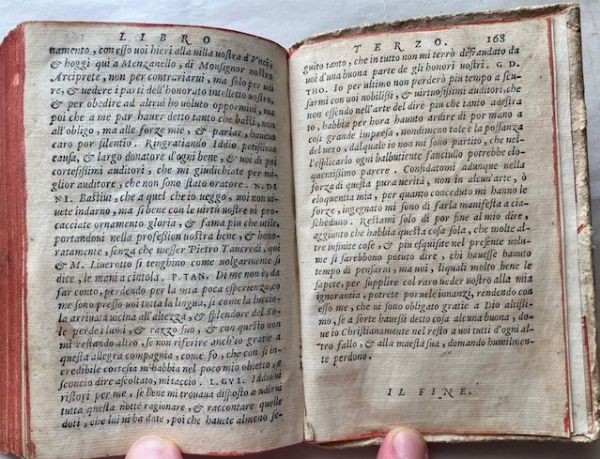 LIBRO
namento, con esso voi hieri alla villa vostra d'Vnci,
& hoggi qui a Menzanello, di Monsignor nostro
Arciprete, non per contrariarui, ma solo per udi
re, & uedere i parti dell'honorato intelletto nostro,
& per obedire ad altrui ho uoluto oppormi, ma
poi che a me par hauer detto tanto che basti, non
all'obligo, ma alle forze mie, & parlar, hauerò
caro por silentio. Ringratiando Iddio potissima
causa, & largo donatore d'ogni bene, & uoi di poi
cortesissimi auditori, che mi giudichiate per mi-
glior auditore, che non sono stato oratore. N. DI
NI. Bastiui, che a quel che io ueggo, uoi non ha-
uete indarno, ma si bene con le uirtù uostre ui pro
cacciate ornamento gloria, & fama piu che utile,
portandoui nella professìon uostra bene, & hono-
ratamente, senza che messer Pietro Tancredi, qui
& M. Liuerotto si tenghino come uolgarmente si
dice, le mani a cintola. P. TAN. Di me non è, da
far conto, perdendo per la mia poca esperienza, co
me sono presso uoi tutta la lingua, si come la luccio-
la arriuata uicina all'altezza, & splendore del So-
le perde i lumi, & razzo suo, & con questo non
mi restando altro, se non riferire anch'io gratie a
questa allegra compagnia, come fo, che con sì in-
credibile cortesia m'habbia nel poco mio obietto, e
sconcio dire ascoltato, mi taccio. L. GVI. Iddio ui
ristori per me, se bene mi trouaua disposto a udirui
tutta questa notte ragionare, & raccontare quelle
doti, che lui ui ha date, poi che hauete almeno se-
TERZO. 168
guito tanto, che in tutto non mi terrò defraudato da
uoi d'una buona parte de gli honori uostri. G. D.
THO. Io per ultimo non perderò piu tempo a scu-
sarmi con uoi nobilissi, & uirtuosissimi auditori, che
non essendo nell'arte del dire piu che tanto adestra
to, habbia per hora hauuto ardire di por mano a
cosi grande impresa, nondimeno tale è la possanza
del uero, dalquale io non mi sono partito, che nel-
l'esplicarlo ogni balbutiente fanciullo potrebbe elo-
quentissimo parere. Confidatomi adunque nella
forza di questa pura uerità, non in alcun'arte, ò
eloquentia mia, per quanto conceduto mi hanno le
forze, ingegnato mi sono di farla manifesta a cia-
scheduno. Restami solo di por fine al mio dire,
aggiunto che habbia questa cosa sola, che molte al-
tre infinite cose, & piu esquisite nel presente uolu-
me si sarebbono potuto dire, chi hauesse hauuto
tempo di pensarui, ma uoi, liquali molto bene le
sapete, per supplire col raro ueder uostro alla mia
ignorantia, potrete poruele innanzi, rendendo con
esso me, che ui sono obligato gratie a Dio altissi-
mo, se a sorte hauessi detto cosa alcuna buona, do-
ue io Christianamente nel resto a uoi tutti d'ogni al-
tro fallo, & alla maestà sua, domando humilmen-
te perdono.
IL FINE.